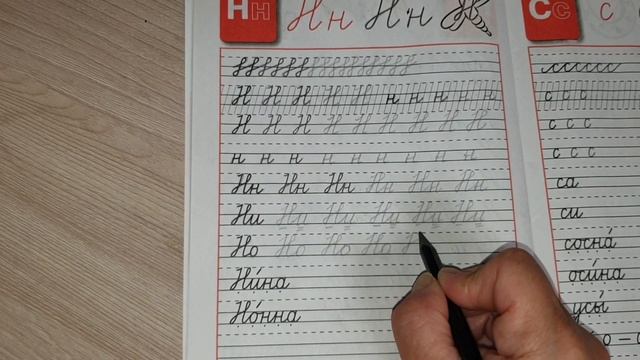 Нн Н н Н н
Н Н Н Н Н н н н н н
Н Н Н Н Н Н Н Н Н
н н н н н н н н н
Нн Нн Нн Нн Нн Нн
Ни Ни Ни Ни Ни Ни
Но Но Но Но Н
Ни́на
Но́нна
Сс С
с с с
с с с
с с с
са
си
сосна́
оси́на
усы́